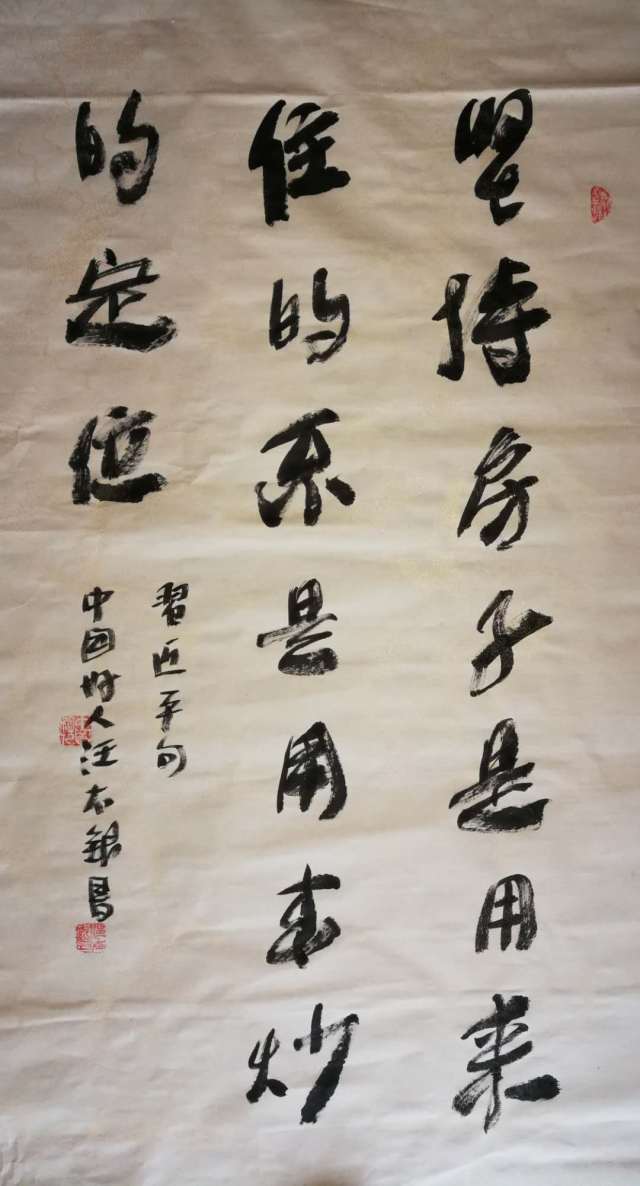 坚持房子是用来
住的不是用来炒
的定位
習近平句
中国好人汪太银書